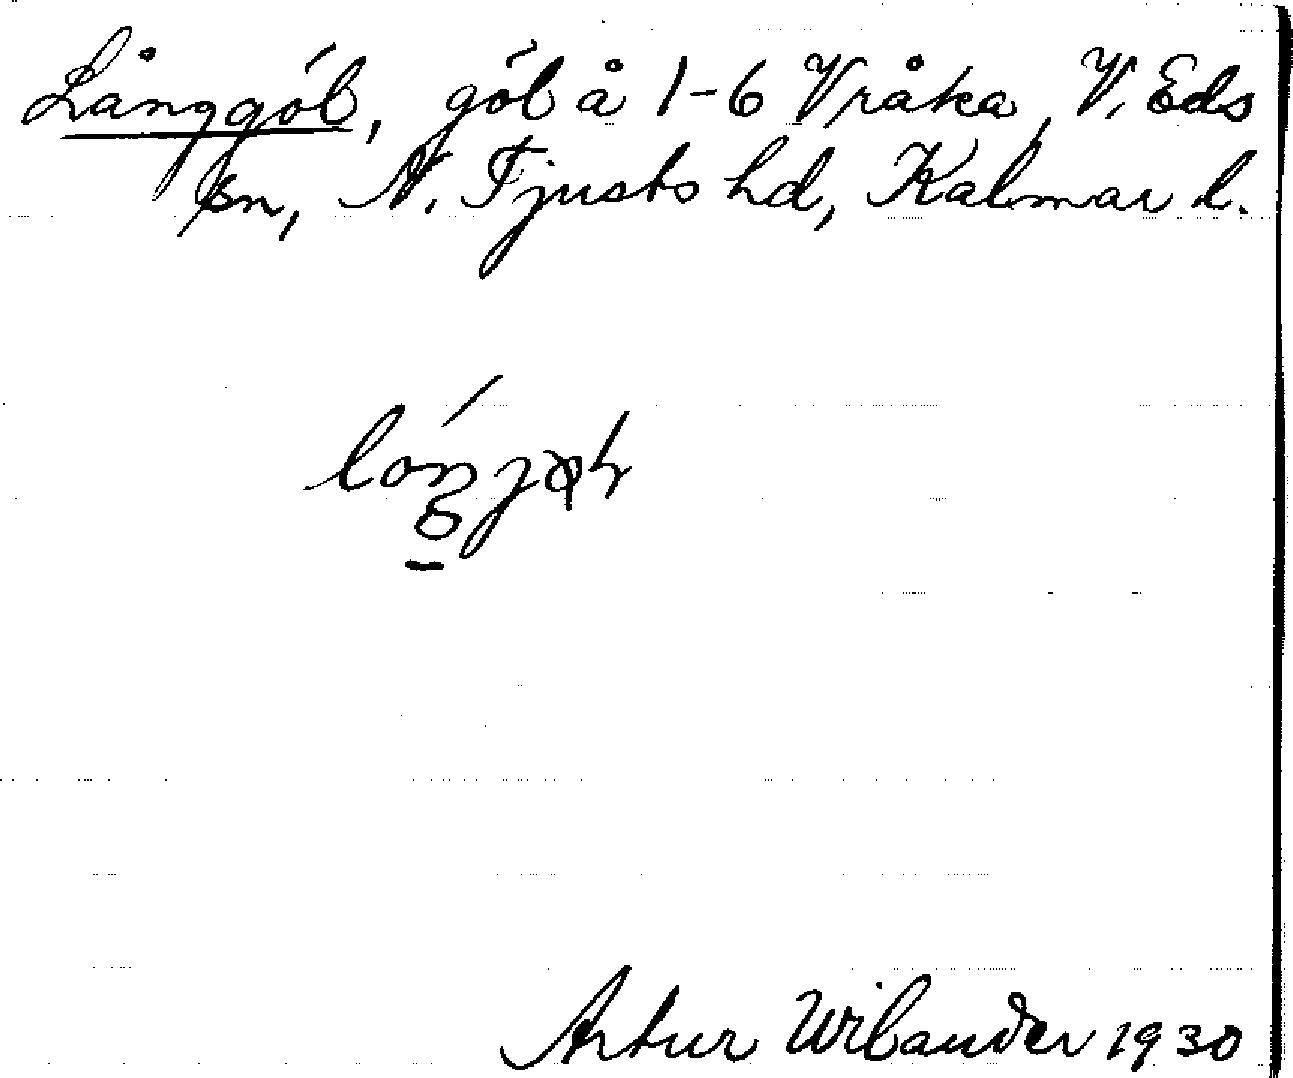 Långgól, gól å 1-6 Vråka, V. Eds
sn, N. Tjusts hd, Kalmar l.
Artur Wilander 1930